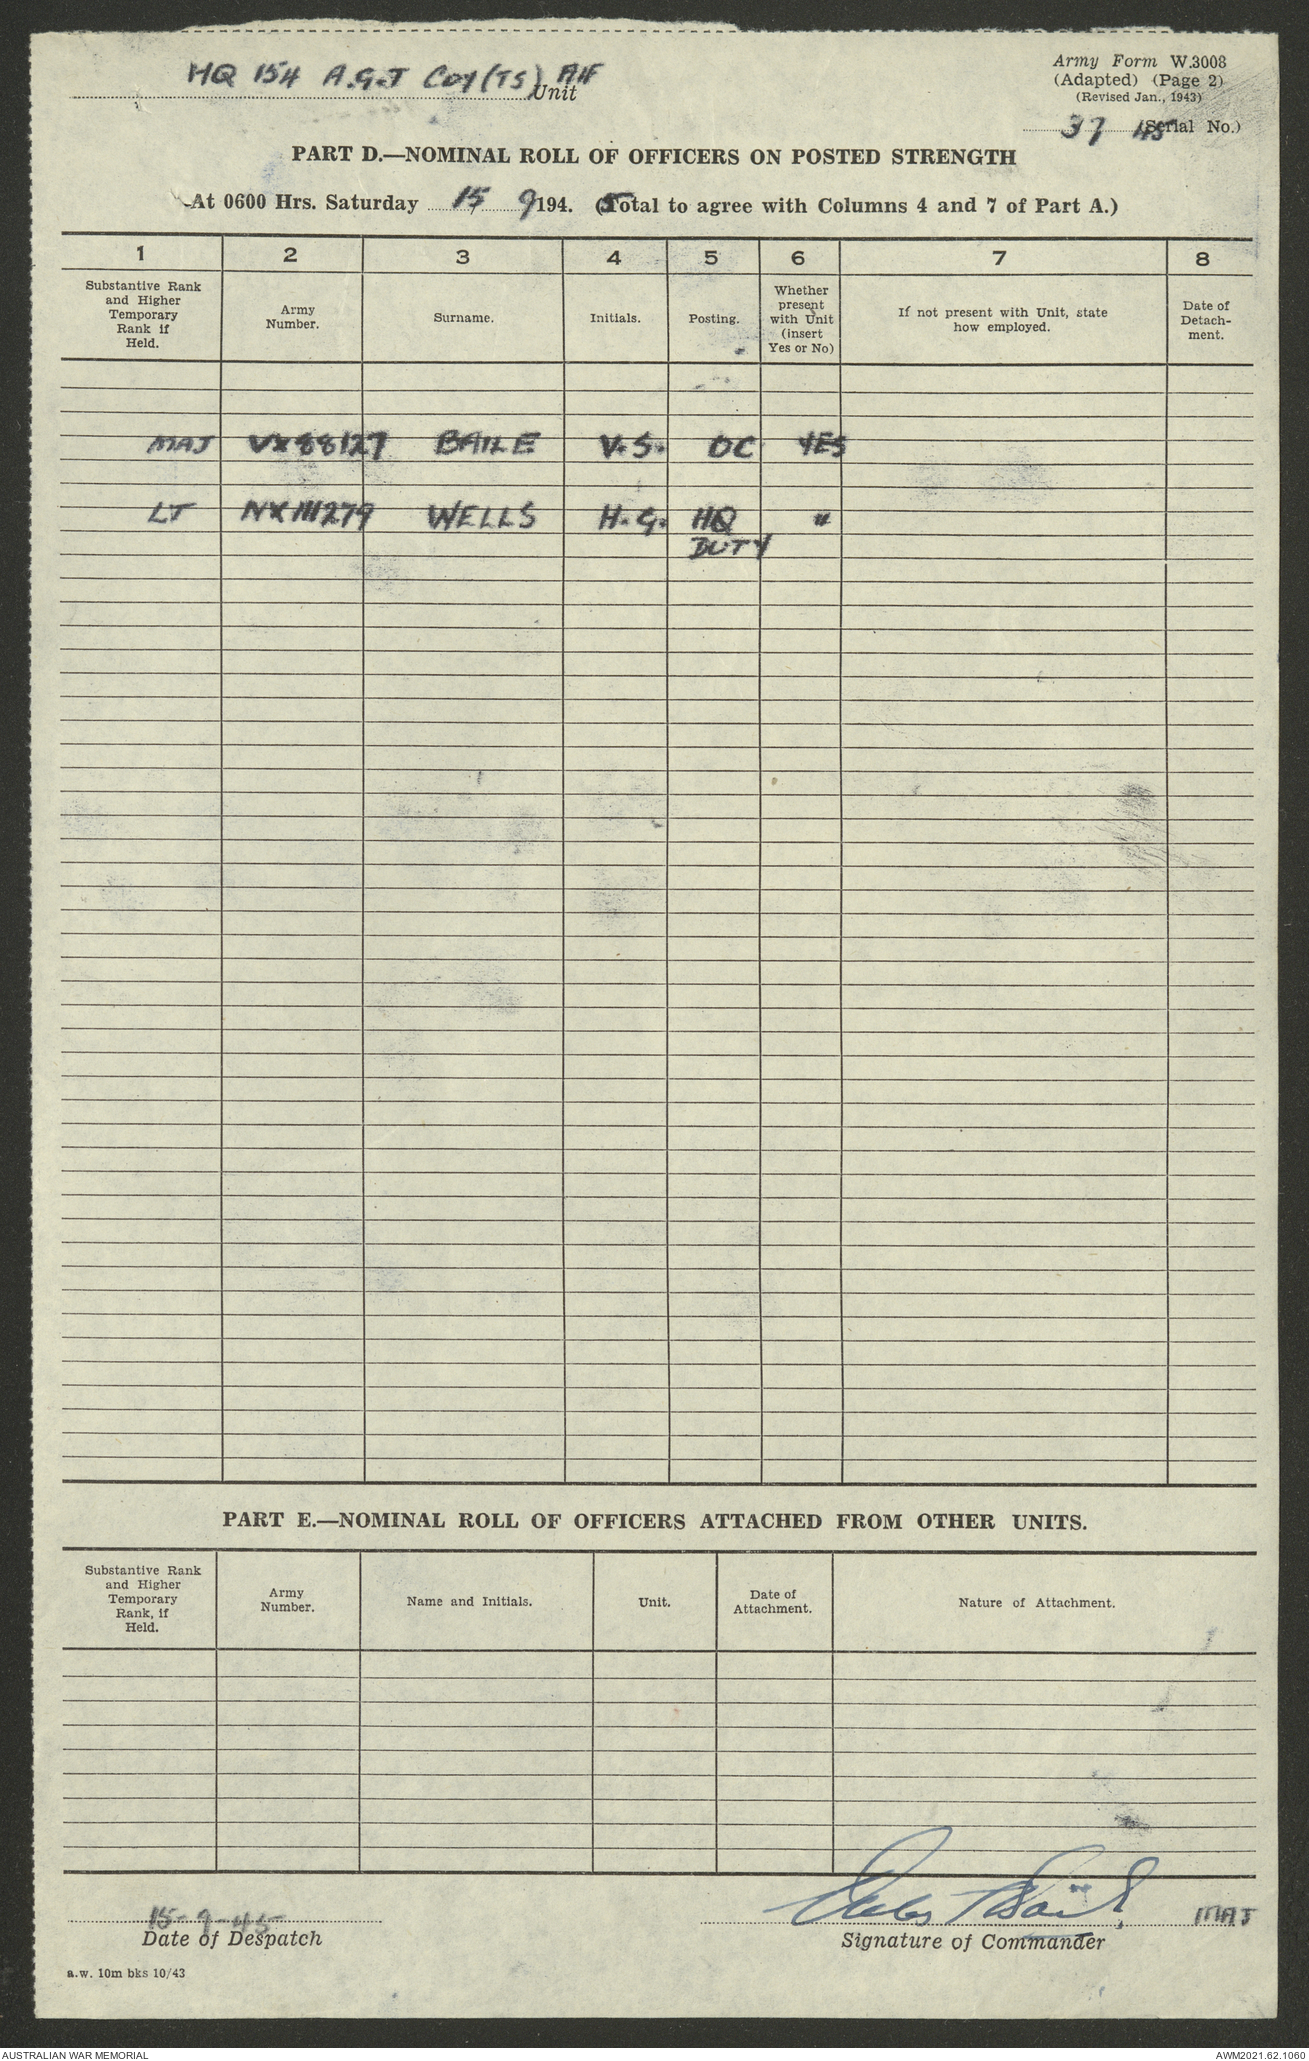 HQ 154 A.G.T Coy (TS) AIF
Unit
Army Form W.3008
(Adapted) (Page 2)
(Revised Jan., 1943)
37 45 (Serial No.)
PART D.—NOMINAL ROLL OF OFFICERS ON POSTED STRENGTH
At 0600 Hrs. Saturday 15 9 194. 5 (Total to agree with Columns 4 and 7 of Part A.)
1 2 3 4 5 6 7 8
Substantive Rank
and Higher
Temporary
Rank if
Held.
Army
Number.
Surname.
Initials.
Posting.
Whether
present
with Unit
(insert
Yes or No)
If not present with Unit, state
how employed.
Date of
Detach-
ment.
MAJ VX88127 BAILE V.S. OC YES
LT NX111279 WELLS H.G. HQ "
DUTY
PART E.—NOMINAL ROLL OF OFFICERS ATTACHED FROM OTHER UNITS.
Substantive Rank
and Higher
Temporary
Rank, if
Held.
Army
Number.
Name and Initials.
Unit.
Date of
Attachment.
Nature of Attachment.
15-9-45
Date of Despatch
MAJ
Signature of Commander
a.w. 10m bks 10/43
AUSTRALIAN WAR MEMORIAL
AWM2021.62.1060